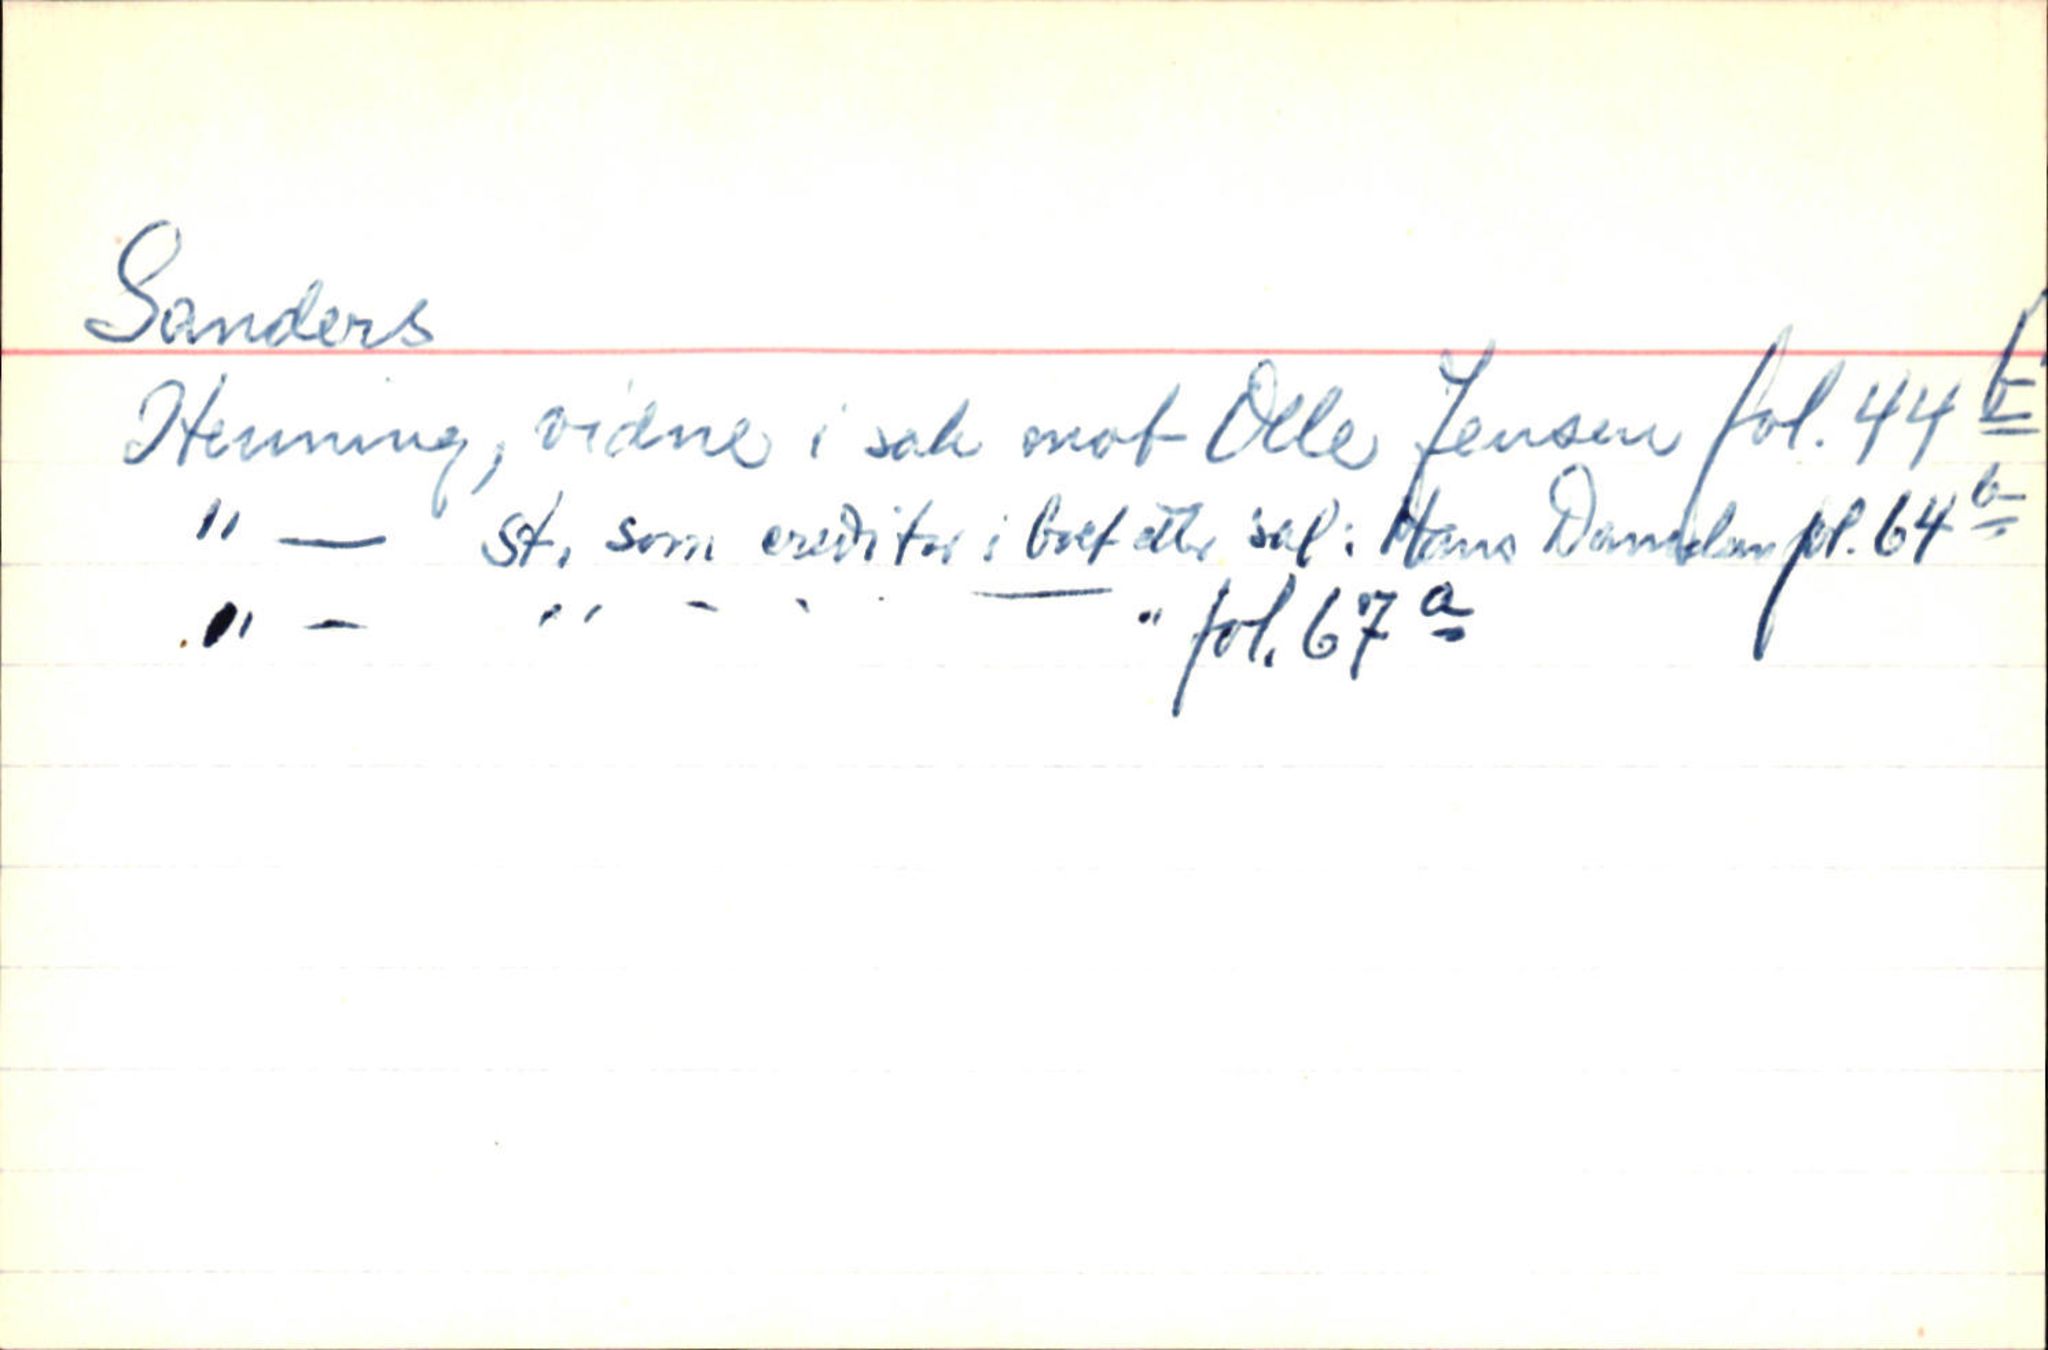 Sanders
Henning, vidne i sak mot Olle Jensen fol. 44 b
" — st. som creditor i boet etter sal: Hans fol. 64 b
" — " - - — " fol. 67 a